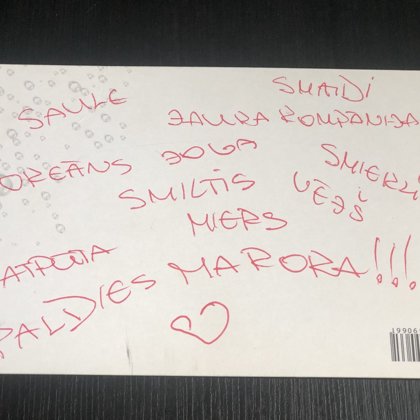 SMAIDI
SAULE
JAUKA KOMPĀNIJA
OKEĀNS JOGA
SMIEKLI
SMILTIS VĒJŠ
MIERS
ATPŪTA
PALDIES MARORA!!!
19906